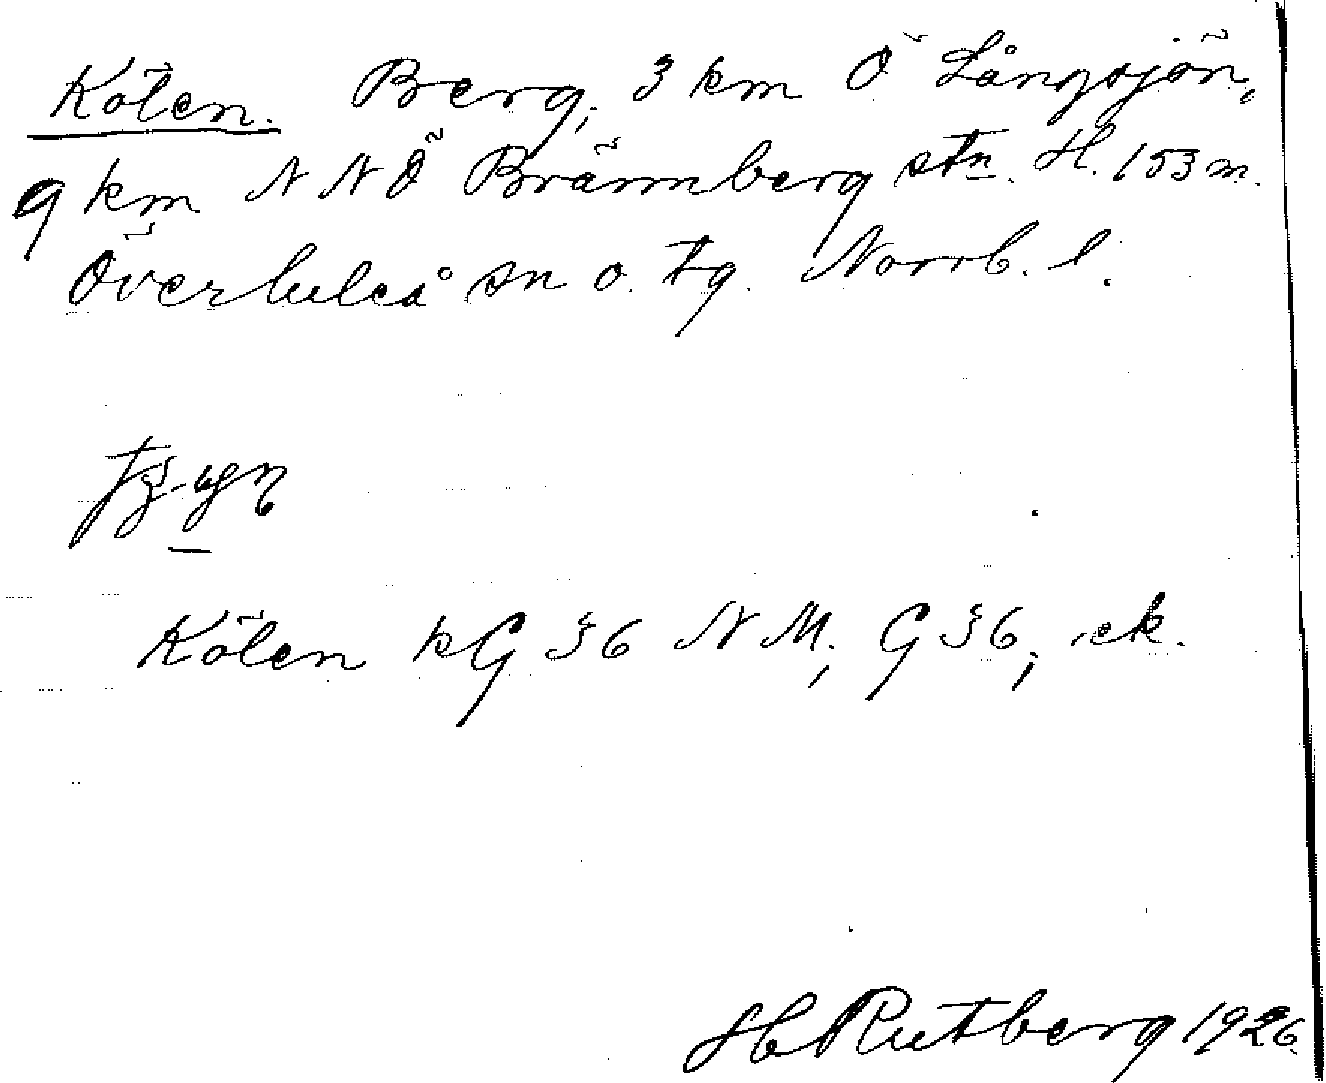 Kölen. Berg, 3 km Ö Långsjön,
9 km NNÖ Brännberg stn. H. 153 m.
Överluleå sn o. tg. Norrb. l.
Kölen kG 36 NM, G 36, ek.
H Rutberg 1926